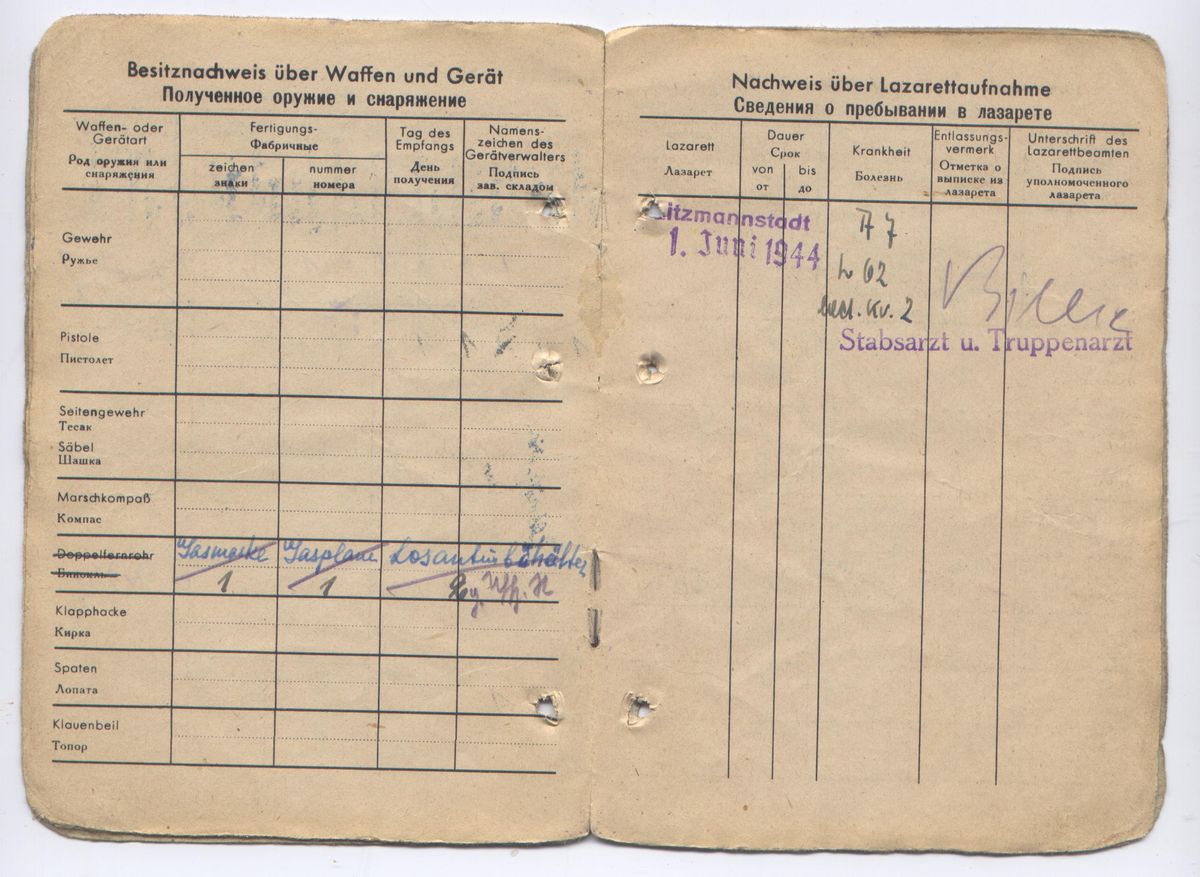 Besitznachweis über Waffen und Gerät
Полученное оружие и снаряжение
Waffen- oder
Gerätart
Род оружия или
снаряжения
Fertigungs-
Фабричные
zeichen
знаки
nummer
номера
Tag des
Empfangs
День
получения
Namens-
zeichen des
Gerätverwalters
Подпись
зав. складом
Gewehr
Ружье
Pistole
Пистолет
Seitengewehr
Тесак
Säbel
Шашка
Marschkompaß
Компас
Doppelfernrohr
Бинокль
Gasmaske Gasplane Losantinbehälter
1 1
Klapphacke
Кирка
Spaten
Лопата
Klauenbeil
Топор
Nachweis über Lazarettaufnahme
Сведения о пребывании в лазарете
Lazarett
Лазарет
Dauer
Срок
von
от
bis
до
Krankheit
Болезнь
Entlassungs-
vermerk
Отметка о
выписке из
лазарета
Unterschrift des
Lazarettbeamten
Подпись
уполномоченного
лазарета
Litzmannstadt
1. Juni 1944
A 7
L 62
Kv. 2
Stabsarzt u. Truppenarzt